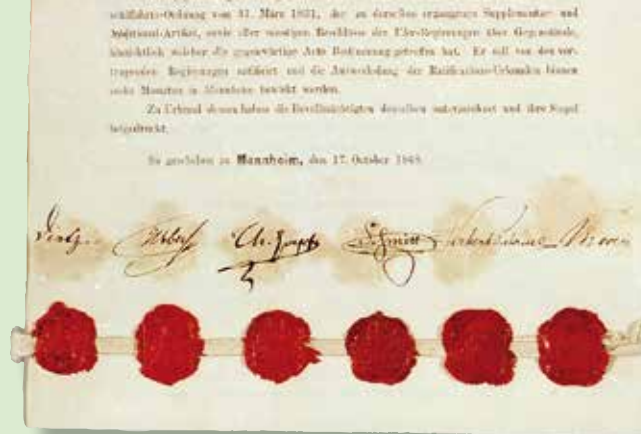 schiffahrts-Ordnung vom 31. März 1831, der zu derselben ergangenen Supplementar- und
Additional-Artikel, sowie aller sonstigen Beschlüsse der Ufer-Regierungen über Gegenstände,
hinsichtlich welcher die gegenwärtige Acte Bestimmung getroffen hat. Er soll von den ver-
tragenden Regierungen ratificirt und die Auswechslung der Ratifications-Urkunden binnen
sechs Monaten in Mannheim bewirkt werden.
Zu Urkund dessen haben die Bevollmächtigten denselben unterzeichnet und ihre Siegel
beigedruckt.
So geschehen zu Mannheim, den 17. October 1868.
Schmitt